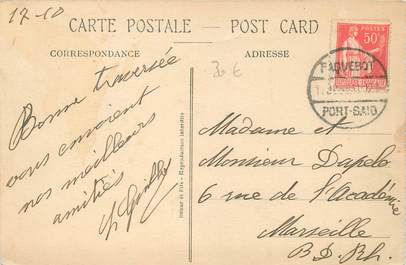 17-10
CARTE POSTALE - POST CARD
CORRESPONDANCE
ADRESSE
POSTES
50c
PAQUEBOT
PORT-SAID
Bonne traversée
vous envoient
nos meilleurs
amitiés
Madame et
Monsieur Dapelo
6 rue de l'Académie
Marseille
B.D.Rh.